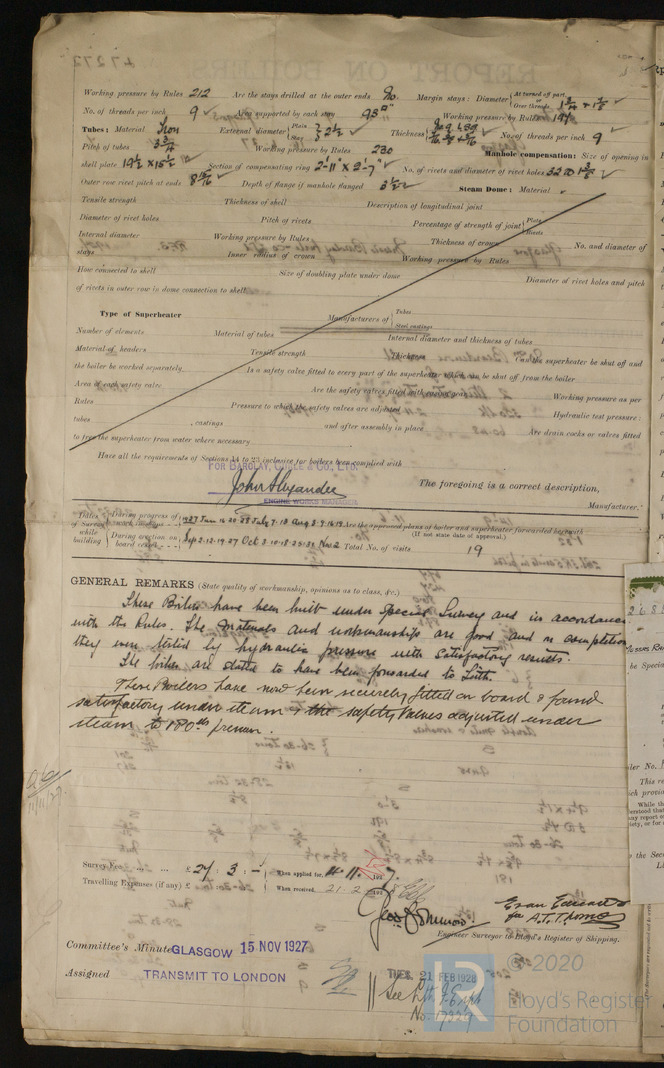 Working pressure by Rules 212 Are the stays drilled at the outer ends No. Margin stays: Diameter { At turned off part, Over threads 1 3/4 + 1 7/8
No. of threads per inch 9 Area supported by each stay 93 □" Working pressure by Rules 197
Tubes: Material Iron External diameter { Plain Stay } 2 1/2 Thickness No. of threads per inch 9
Pitch of tubes 3 3/4 Working pressure by Rules 230 Manhole compensation: Size of opening in
shell plate 19 1/2 x 15 1/2 Section of compensating ring 2'-11" x 2'-7" No. of rivets and diameter of rivet holes 32
Outer row rivet pitch at ends 8 Depth of flange if manhole flanged 3 1/2 Steam Dome: Material
Tensile strength Thickness of shell Description of longitudinal joint
Diameter of rivet holes Pitch of rivets Percentage of strength of joint { Plate Rivets
Internal diameter Working pressure by Rules Thickness of crown No. and diameter of
stays Inner radius of crown Working pressure by Rules
How connected to shell Size of doubling plate under dome Diameter of rivet holes and pitch
of rivets in outer row in dome connection to shell.
Type of Superheater Manufacturers of { Tubes Steel castings
Number of elements Material of tubes Internal diameter and thickness of tubes
Material of headers Tensile strength Thickness Can the superheater be shut off and
the boiler be worked separately. Is a safety valve fitted to every part of the superheater which can be shut off from the boiler
Area of each safety valve Are the safety valves fitted with easing gear Working pressure as per
Rules Pressure to which the safety valves are adjusted Hydraulic test pressure:
tubes , castings and after assembly in place Are drain cocks or valves fitted
to free the superheater from water where necessary
Have all the requirements of Sections 14 to 23 inclusive for boilers been complied with
FOR BARCLAY, CURLE & CO., LTD.
John Alexander The foregoing is a correct description,
ENGINE WORKS MANAGER Manufacturer.
Dates of Survey while building { During progress of work in shops - - 1927 Jun 16. 20. 28 July 7. 18 Aug 3. 9. 16. 19 Are the approved plans of boiler and superheater forwarded herewith
During erection on board vessel - - Sep 2. 12. 19. 27 Oct 3. 10. 18. 25. 31 Nov 2 (If not state date of approval.)
Total No. of visits 19
GENERAL REMARKS (State quality of workmanship, opinions as to class, &c.)
These Boilers have been built under Special Survey and in accordance
with the Rules. The materials and workmanship are good and on completion
they were tested by hydraulic pressure with satisfactory results.
The boilers are stated to have been forwarded to Leith.
These Boilers have now been securely fitted on board & found
satisfactory under steam & the safety valves adjusted under
steam to 180 lb pressure.
Survey Fee ... £ 27 : 3 : - When applied for, 11. 11. 1927.
Travelling Expenses (if any) £ : : When received, 21. 2. 1928
for A. T. Thomas
Engineer Surveyor to Lloyd's Register of Shipping.
Committee's Minute GLASGOW 15 NOV 1927
Assigned TRANSMIT TO LONDON
TUES. 21 FEB 1928
See Lth. F.E. rpt
No. 17229
© 2020
Lloyd's Register
Foundation